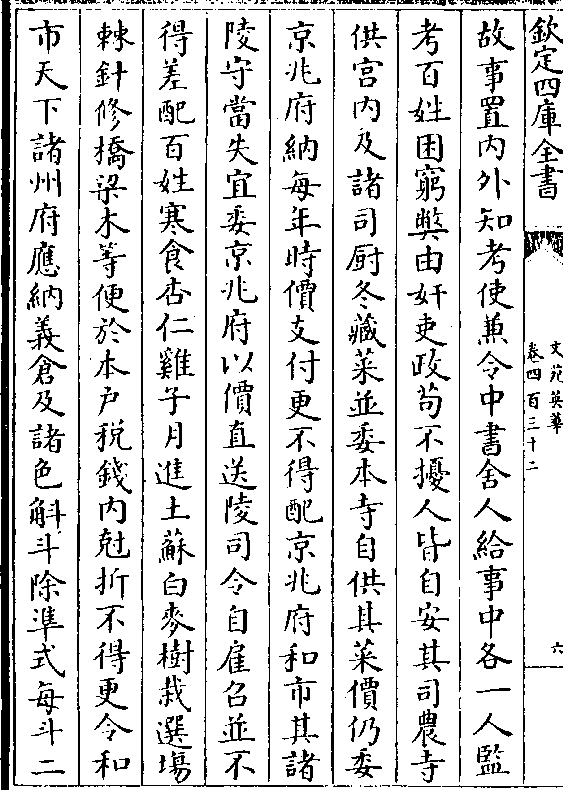 欽定四庫全書
文苑英華
卷四百三十二
六
故事置内外知考使兼令中書舍人給事中各一人監
考百姓困窮弊由奸吏政苟不擾人皆自安其司農寺
供宫内及諸司厨冬藏菜並委本寺自供其菜價仍委
京兆府納每年時價支付更不得配京兆府和市其諸
陵守當夫宜委京兆府以價直送陵司令自雇召並不
得差配百姓寒食杏仁雞子月進土蘇白麥樹栽選場
棘針修橋梁木等便於本户税錢内尅折不得更令和
市天下諸州府應納義倉及諸色斛斗除準式每斗二